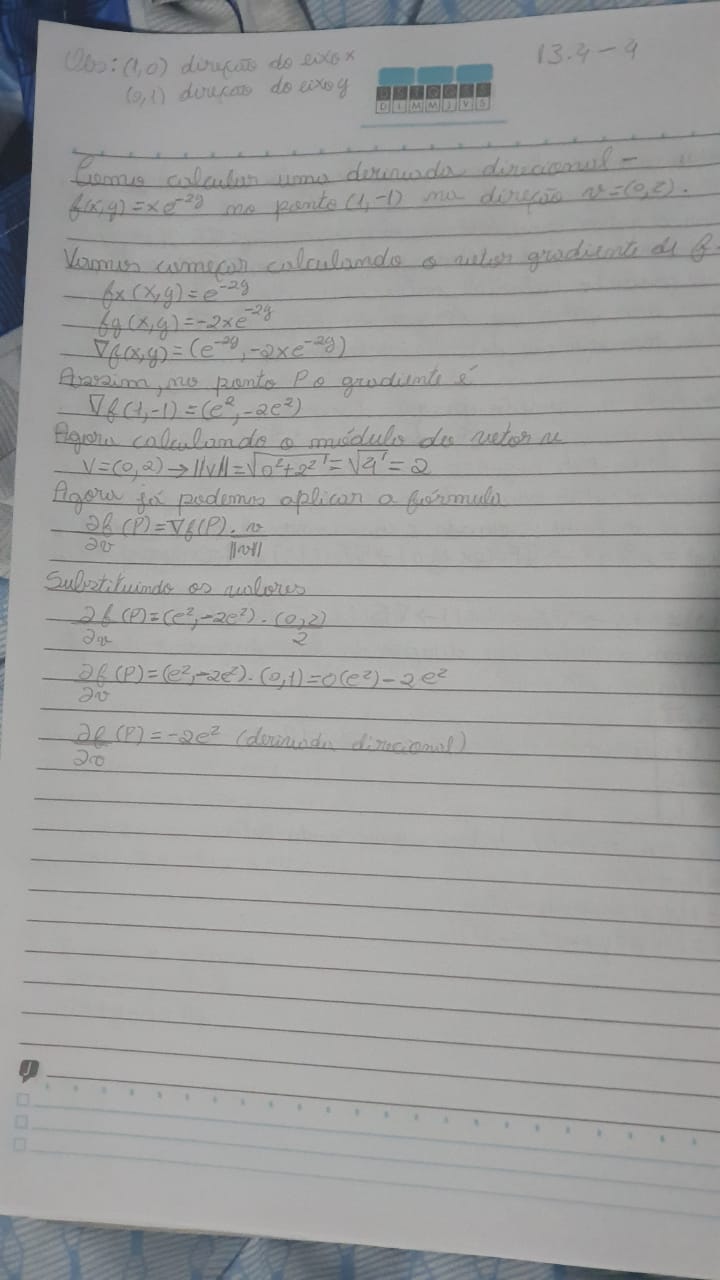 Obs: (1,0) direção do eixo x
(0,1) direção do eixo y
13.4-4
D S T Q Q S S
D L M M J V S
Como calcular uma derivada direcional -
f(x,y)=xe^-2y no ponto (1,-1) na direção v=(0,2).
Vamos começar calculando o vetor gradiente de f.
fx(x,y)=e^-2y
fy(x,y)=-2xe^-2y
∇f(x,y)=(e^-2y,-2xe^-2y)
Assim, no ponto P o gradiente é
∇f(1,-1)=(e²,-2e²)
Agora calculando o módulo do vetor v
V=(0,2)→||V||=√0²+2²=√4=2
Agora já podemos aplicar a fórmula
∂f/∂v (P)=∇f(P).v/||v||
Substituindo os valores
∂f/∂v (P)=(e²,-2e²).(0,2)/2
∂f/∂v (P)=(e²,-2e²).(0,1)=0(e²)-2e²
∂f/∂v (P)=-2e² (derivada direcional)